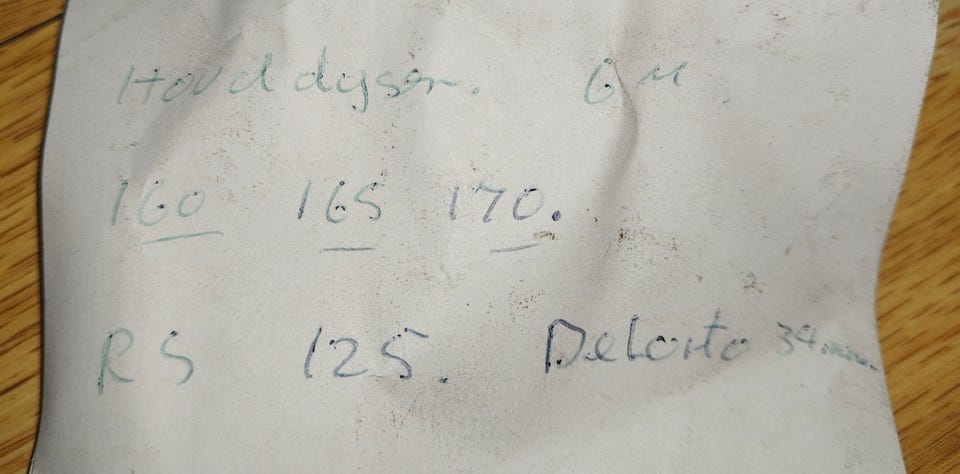 Hovddysen. 6 M
160 165 170.
RS 125. Delorto 34 mm.